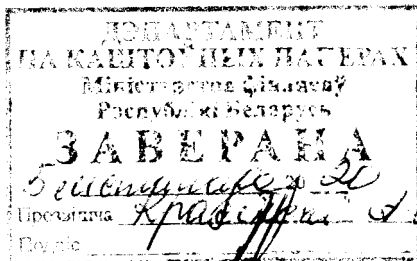 ДЭПАРТАМЕНТ
ПА КАШТОЎНЫХ ПАПЕРАХ
Міністэрства фінансаў
Рэспублікі Беларусь
ЗАВЕРАНА
20
Прозвішча
Подпіс